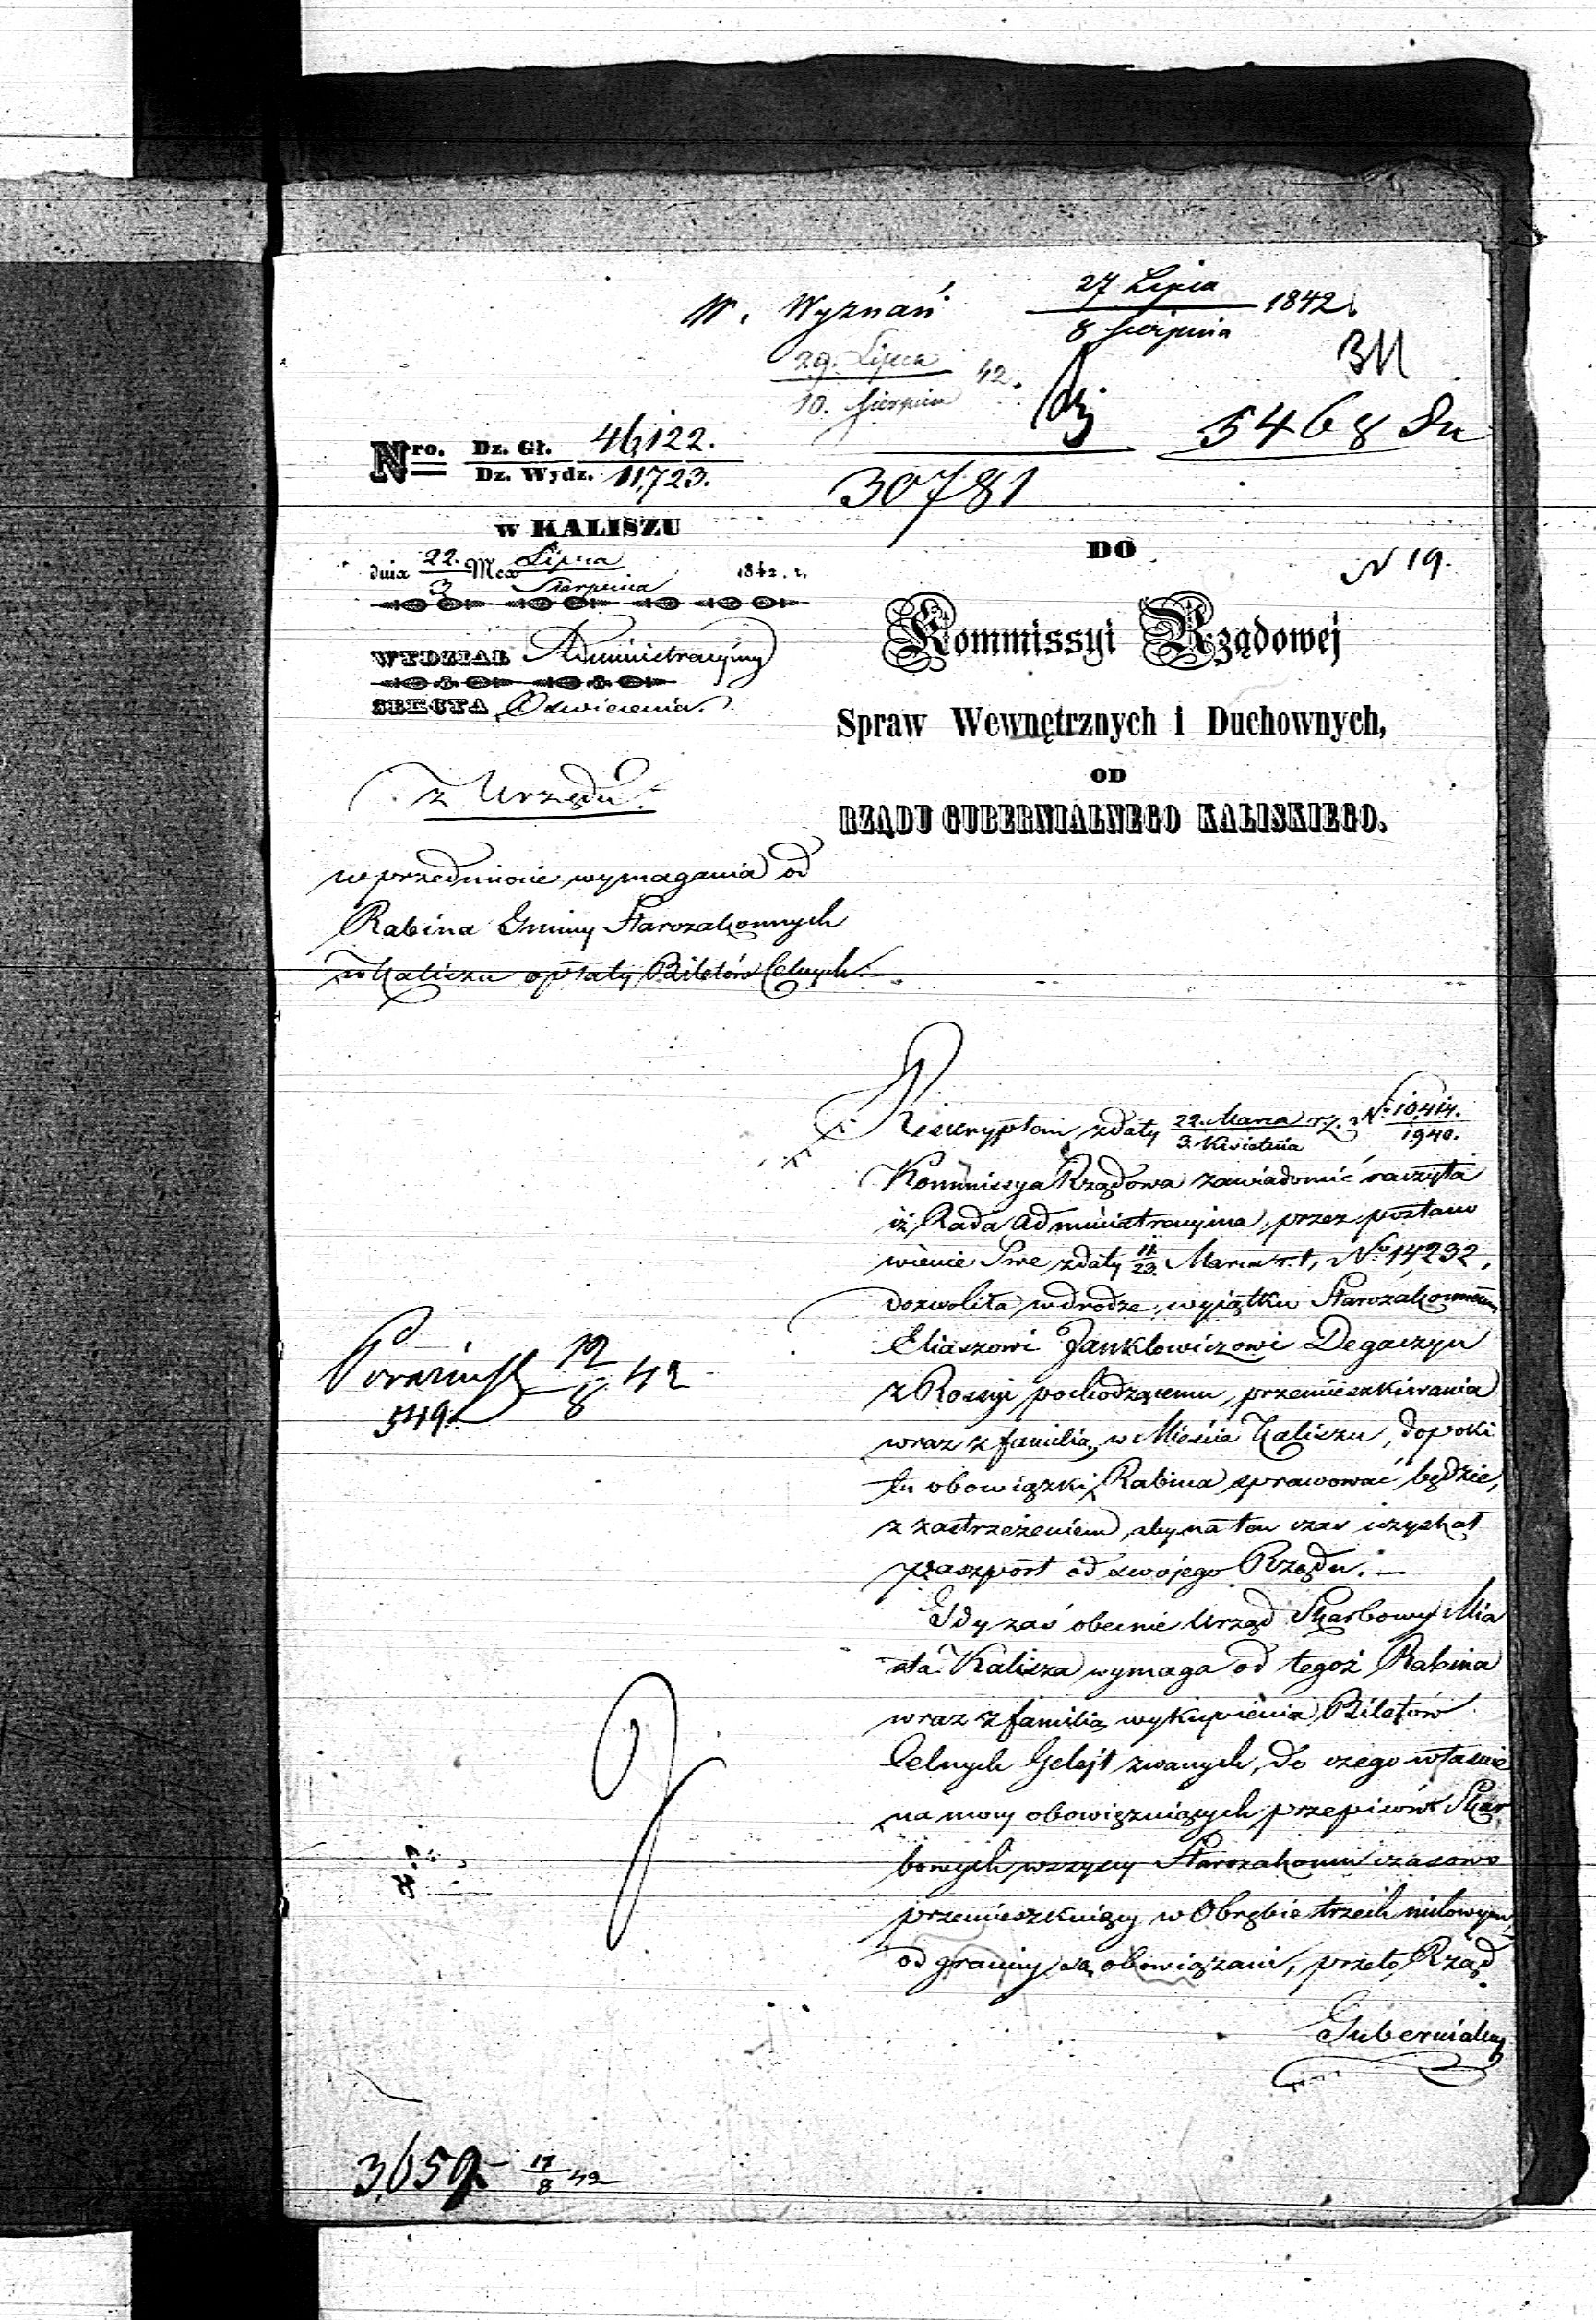 W. Wyznań
27 Lipca 1842.
8 Sierpnia
29. Lipca 42.
10. Sierpnia
5468
30781
Nro. Dz. Gł. 46,122.
Dz. Wydz. 11,723.
w KALISZU
dnia 22. Mca Lipca 1842. r.
3 Sierpnia
WYDZIAŁ Administracyiny
SEKCYA Oświecenia.
z Urzędu.
w przedmiocie wymagania od
Rabina Gminy Starozakonnych
w Kaliszu opłaty Biletów Celnych.
DO
N 19.
Kommissyi Rządowej
Spraw Wewnętrznych i Duchownych,
OD
RZĄDU GUBERNIALNEGO KALISKIEGO.
Reskryptem z daty 22. Marca r. z. N. 10,414.
3. Kwietnia 1940.
Kommissya Rządowa zawiadomić raczyła
iż Rada Administracyjna, przez postano
wienie Swe z daty 11/23. Marca r. t, No 14232,
dozwoliła w drodze wyjątku Starozakonnemu
Eliaszowi Janklowiczowi Degaczyn
z Rossyi pochodzącemu, przemieszkiwania
wraz z familią w Mieście Kaliszu, dopoki
tu obowiązki Rabina sprawować będzie,
z zastrzeżeniem, aby na ten czas uzyskał
paszport od swojego Rządu. —
Gdy zaś obecnie Urząd Skarbowy Mia
sta Kalisza wymaga od tegoż Rabina
wraz z familią wykupienia Biletów
Celnych Gelejt zwanych, do czego właśnie
na mocy obowiązuiących przepisów Skar
bowych wszyscy Starozakonni czasowo
przemieszkuiący w Obrębie trzech milowym
od granicy, są obowiązani, przeto Rząd
Gubernialny
12/8 42
549.
3,659. 17/8 42